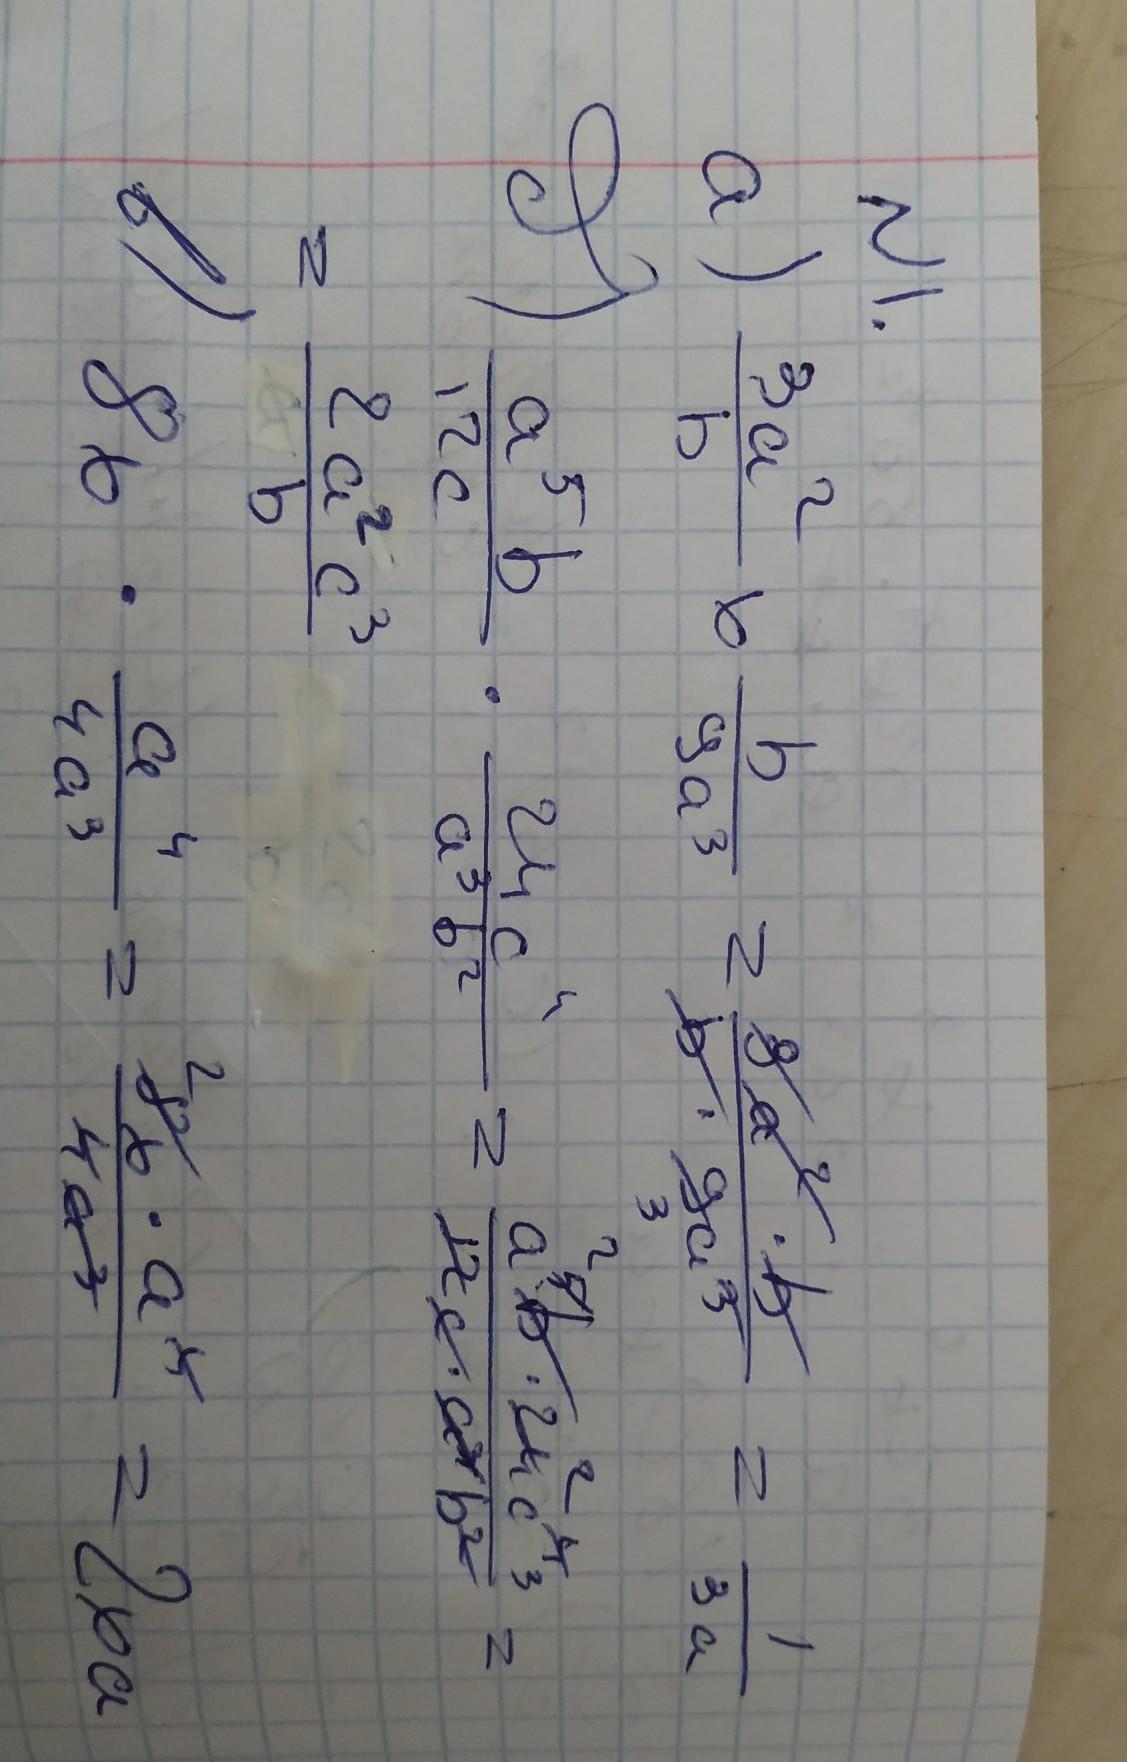 N1.
а) 3a²/b b b/9a³ = 3a²·b/b·9a³ 3 = 1/3a
д) a⁵b/12c · 24c⁴/a³b² = a⁵ ² b·24 ² c⁴ ³/12c·a³b² =
= 2a²c³/b
б) 8b · a⁴/4a³ = 2 8b·a⁴/4a³ = 2ba